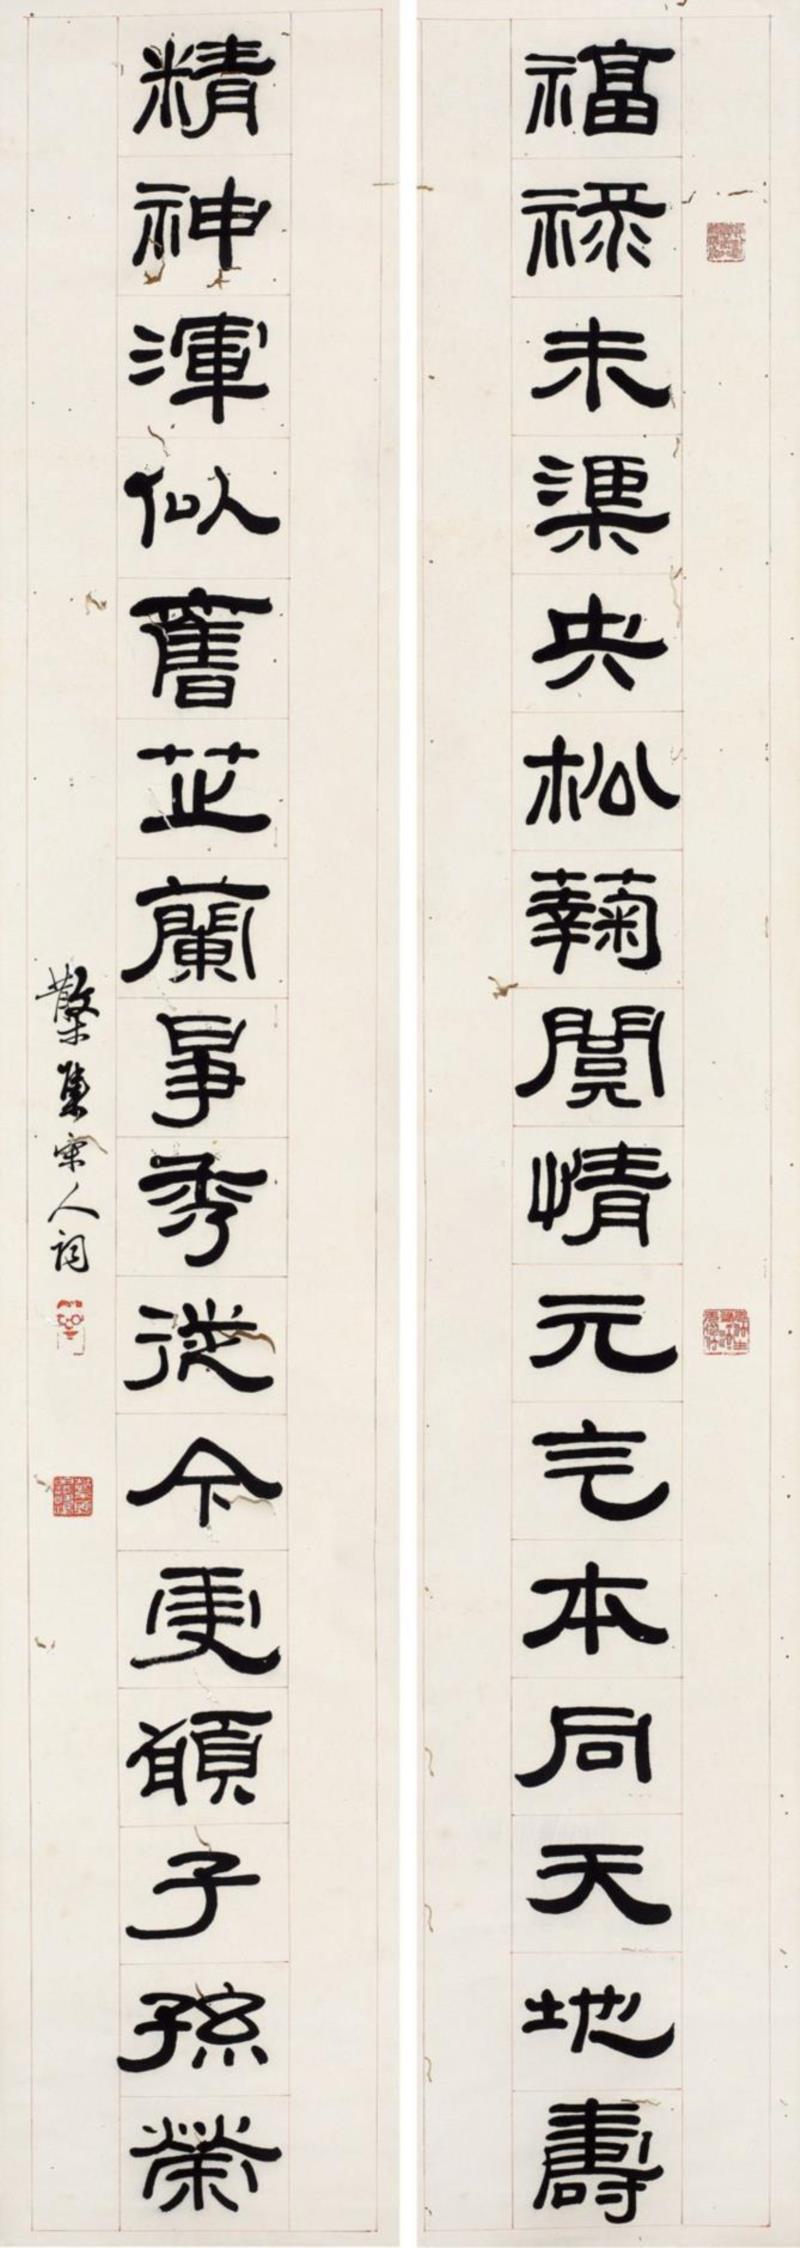 福祿未渠央松蘜閒情元气本同天地壽
精神渾似舊芷蘭爭秀從今更願子孫榮
槃集宋人詞